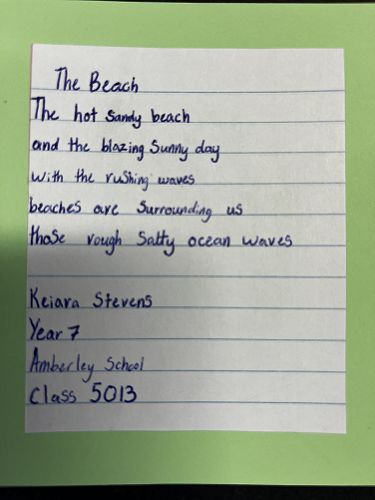 The Beach
The hot sandy beach
and the blazing Sunny day
with the rushing waves
beaches are Surrounding us
those rough Salty ocean waves
Keiara Stevens
Year 7
Amberley School
Class 5013